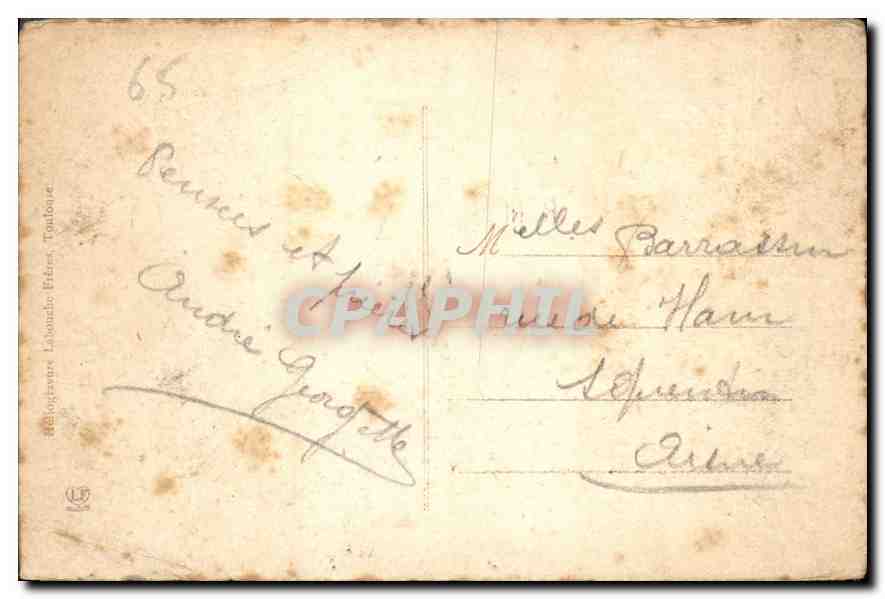 65
Pensées et
André Georgette
Melles Barrassin
rue de Ham
St Quentin
Aisne
Héliogravure Labouche Frères, Toulouse
LF
CPAPHIL